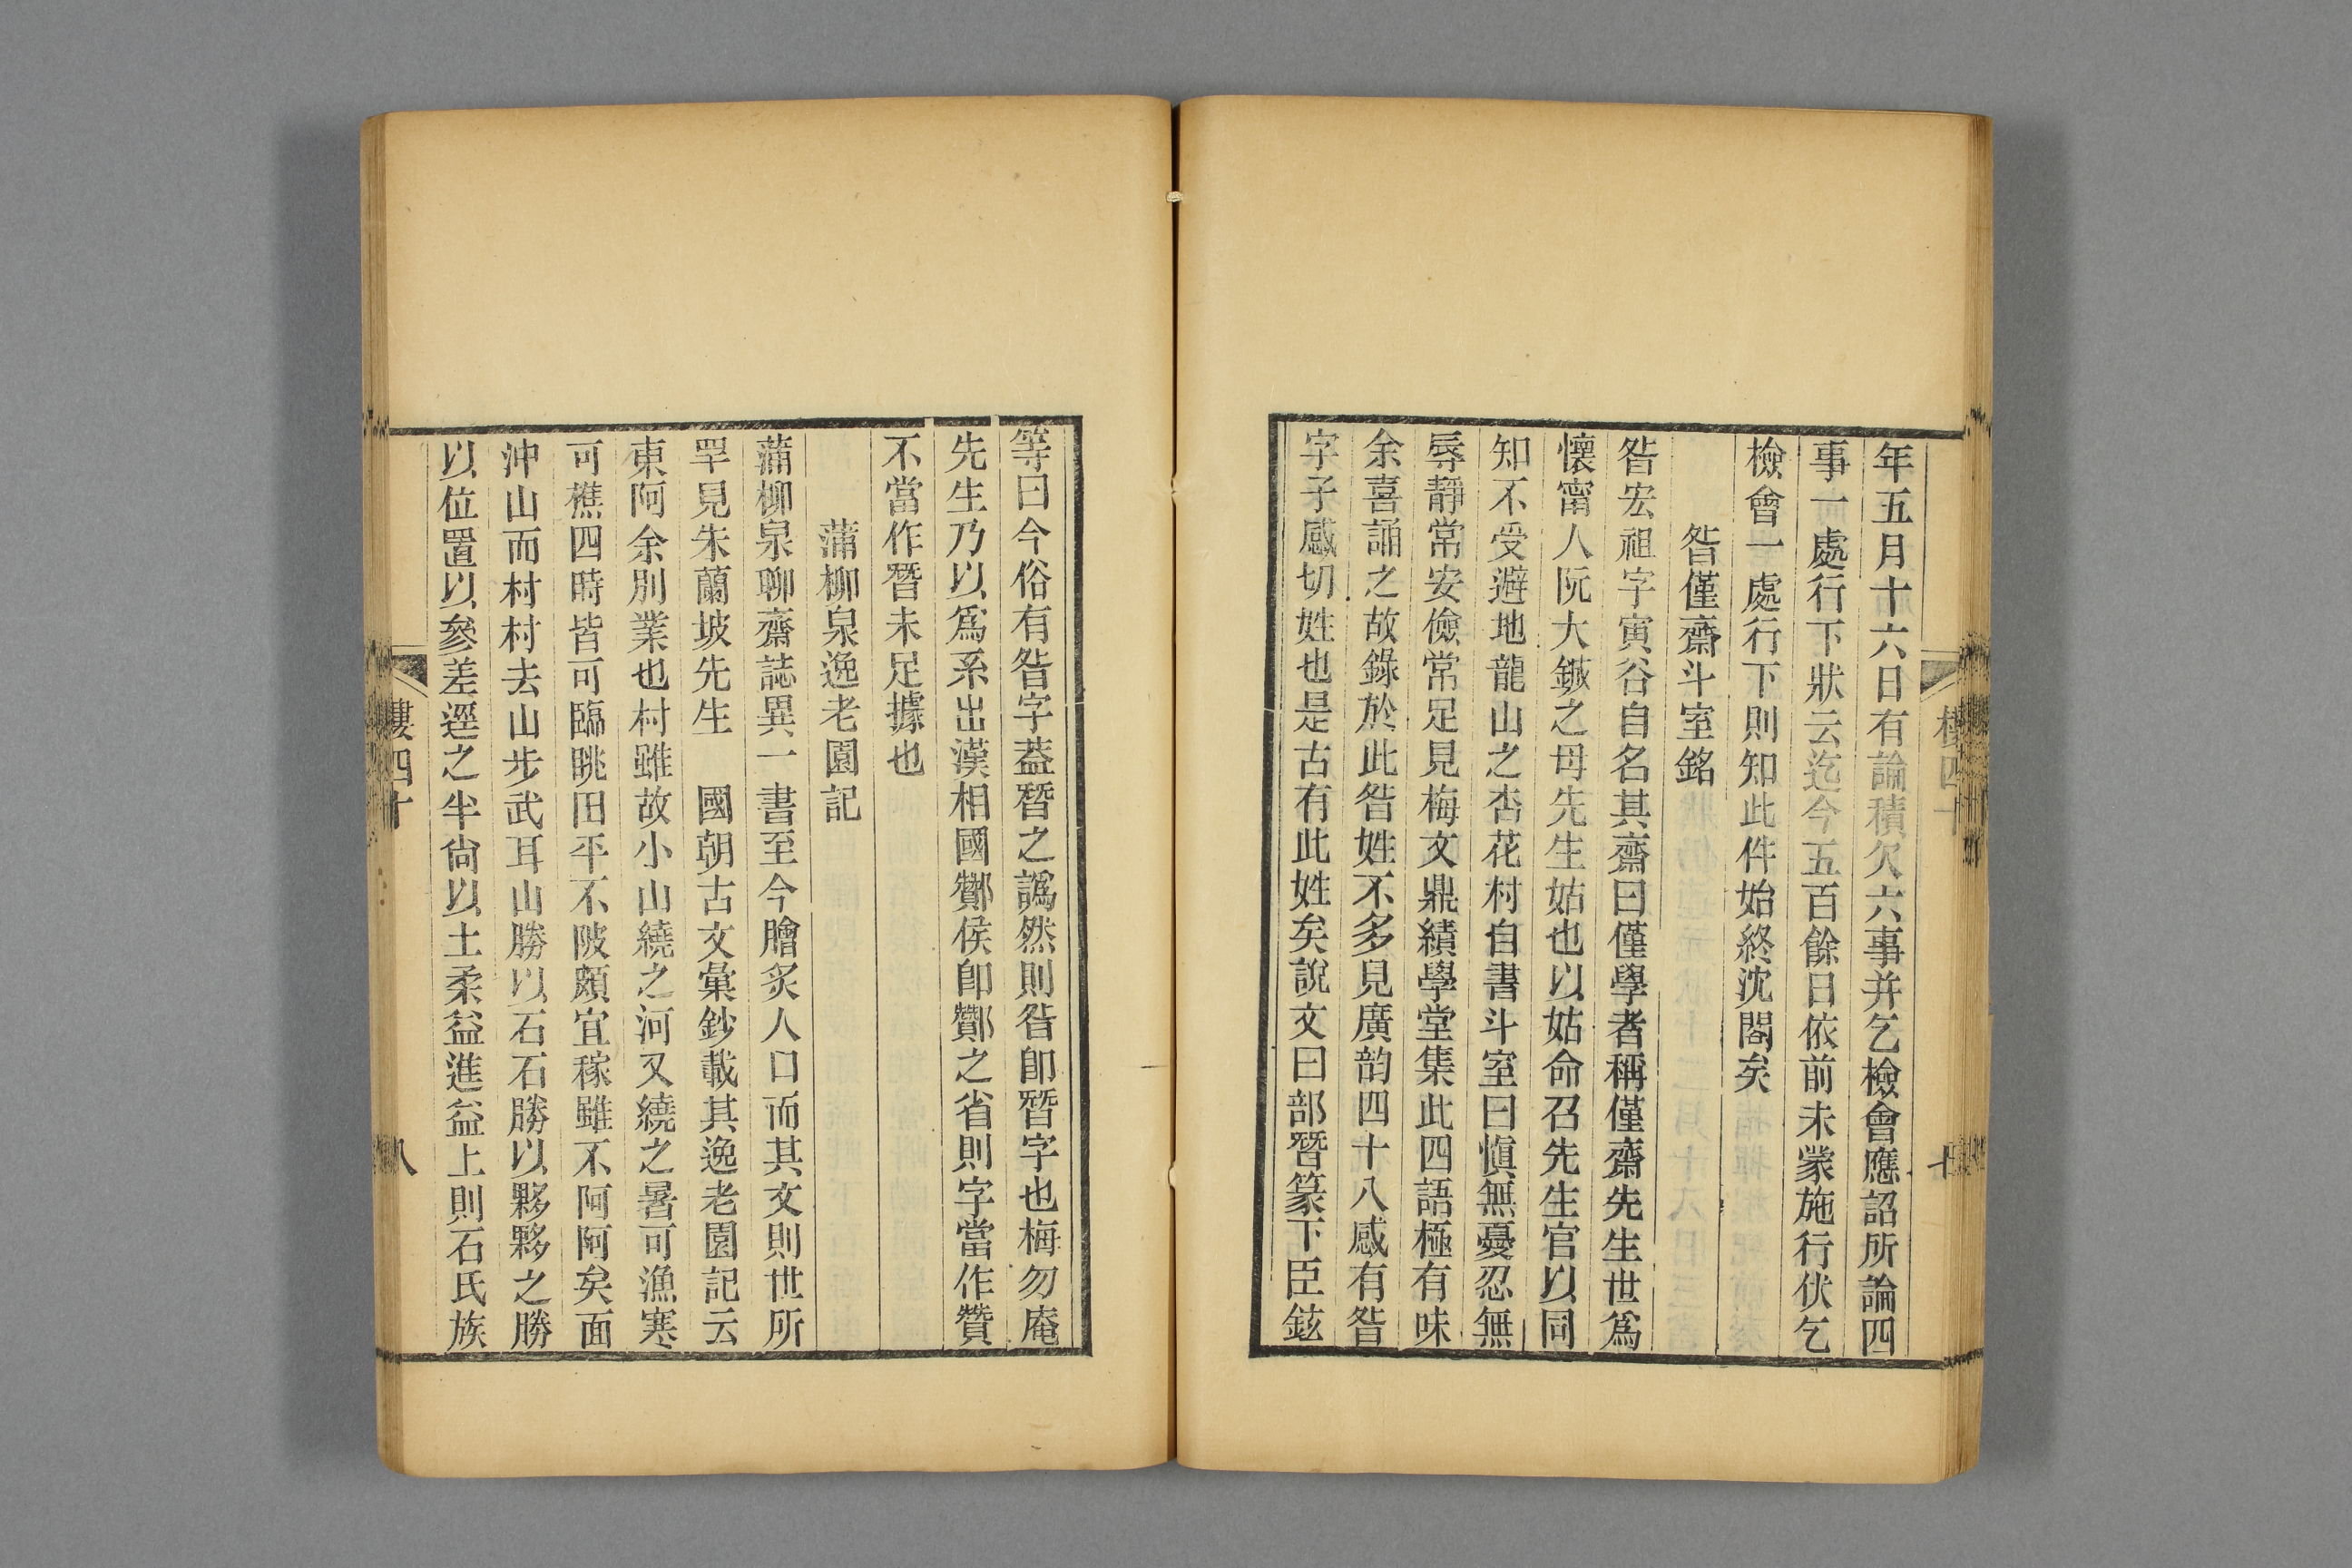 年五月十六日有論積欠六事并乞檢會應詔所論四
事一處行下狀云迄今五百餘日依前未蒙施行伏乞
檢會一處行下則知此件始終沈閣矣
昝僅齋斗室銘
昝宏祖字寅谷自名其齋曰僅學者稱僅齋先生世爲
懷甯人阮大鋮之母先生姑也以姑命召先生官以同
知不受避地龍山之杏花村自書斗室曰愼無憂忍無
辱靜常安儉常足見梅文鼎績學堂集此四語極有味
余喜誦之故錄於此昝姓不多見廣韵四十八感有昝
字子感切姓也是古有此姓矣說文曰部朁篆下臣鉉
樓四十
七
等曰今俗有昝字葢朁之譌然則昝卽朁字也梅勿庵
先生乃以爲系出漢相國酇侯卽酇之省則字當作贊
不當作朁未足據也
蒲柳泉逸老園記
蒲柳泉聊齋誌異一書至今膾炙人口而其文則世所
罕見朱蘭坡先生　國朝古文彙鈔載其逸老園記云
東阿余別業也村雖故小山繞之河又繞之暑可漁寒
可樵四時皆可臨眺田平不陂頗宜稼雖不阿阿矣面
沖山而村村去山步武耳山勝以石石勝以夥夥之勝
以位置以參差逕之半尙以土柔益進益上則石氏族
樓四十
八